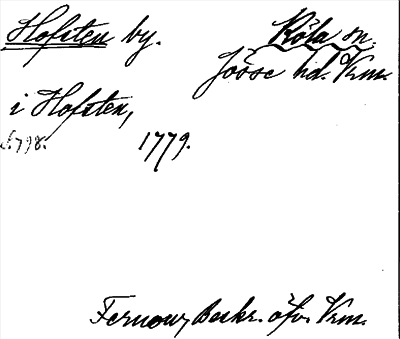 Hofsten by. Köla sn.
Jösse hd. Vrm.
i Hofsten,
s. 798. 1779.
Fernow, Beskr. öfv. Vrm.